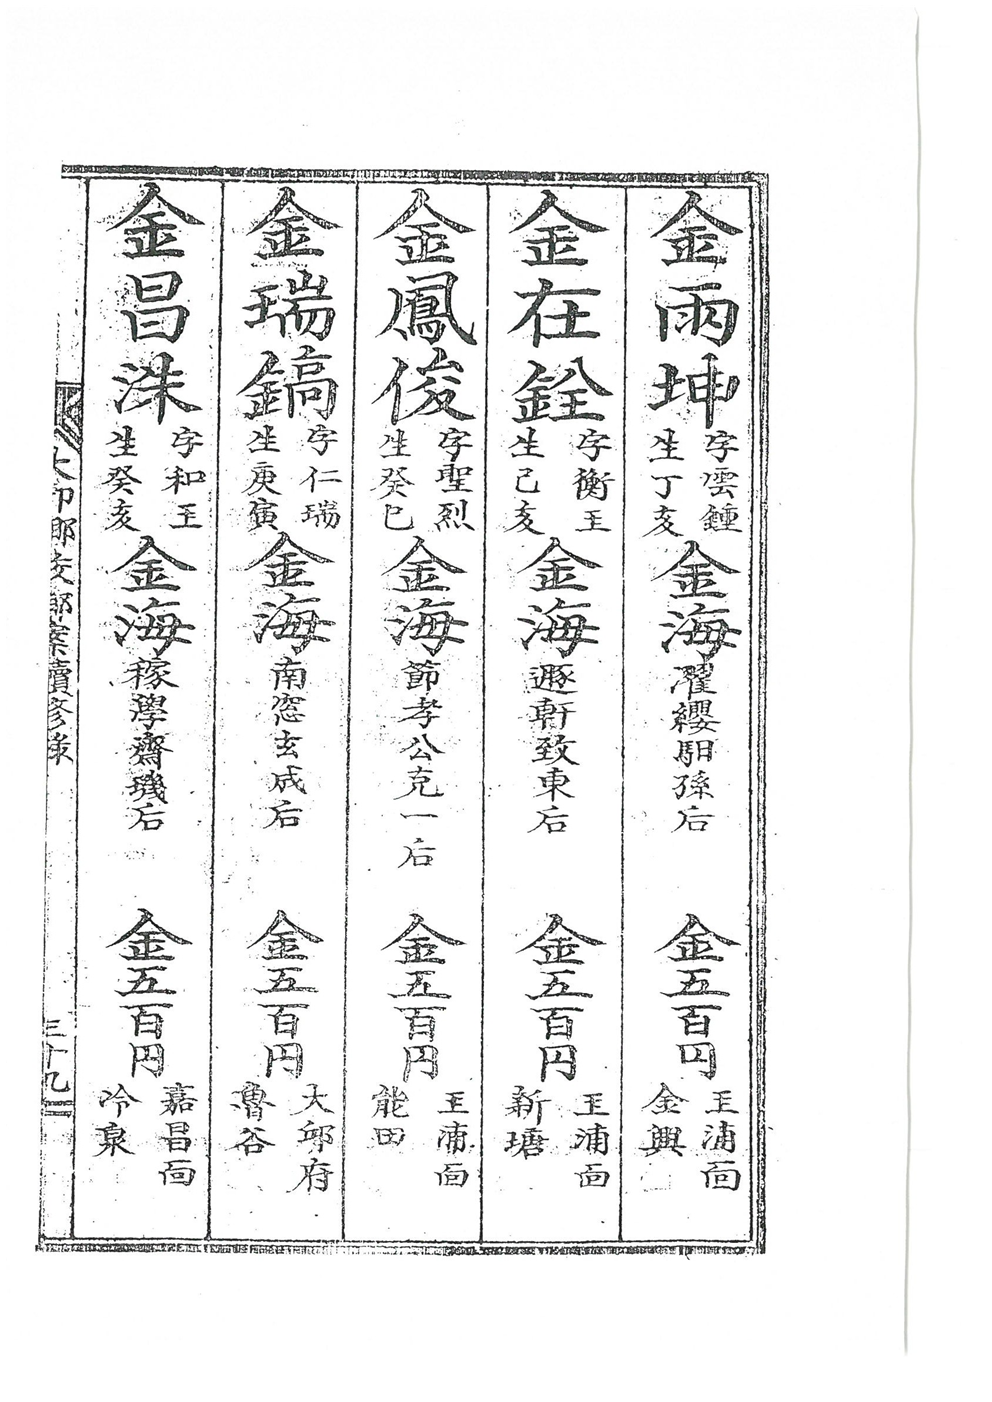 金雨坤 字雲鍾 生丁亥 金海 濯纓馹孫后 金五百円 玉浦面 金興
金在銓 字衡玉 生己亥 金海 遯軒致東后 金五百円 玉浦面 新塘
金鳳俊 字聖烈 生癸巳 金海 節孝公克一后 金五百円 玉浦面 能田
金瑞鎬 字仁瑞 生庚寅 金海 南窓玄成后 金五百円 大邱府 魯谷
金昌洙 字和玉 生癸亥 金海 稼學齋璣后 金五百円 嘉昌面 冷泉
鄕校鄕案續修錄 三十九